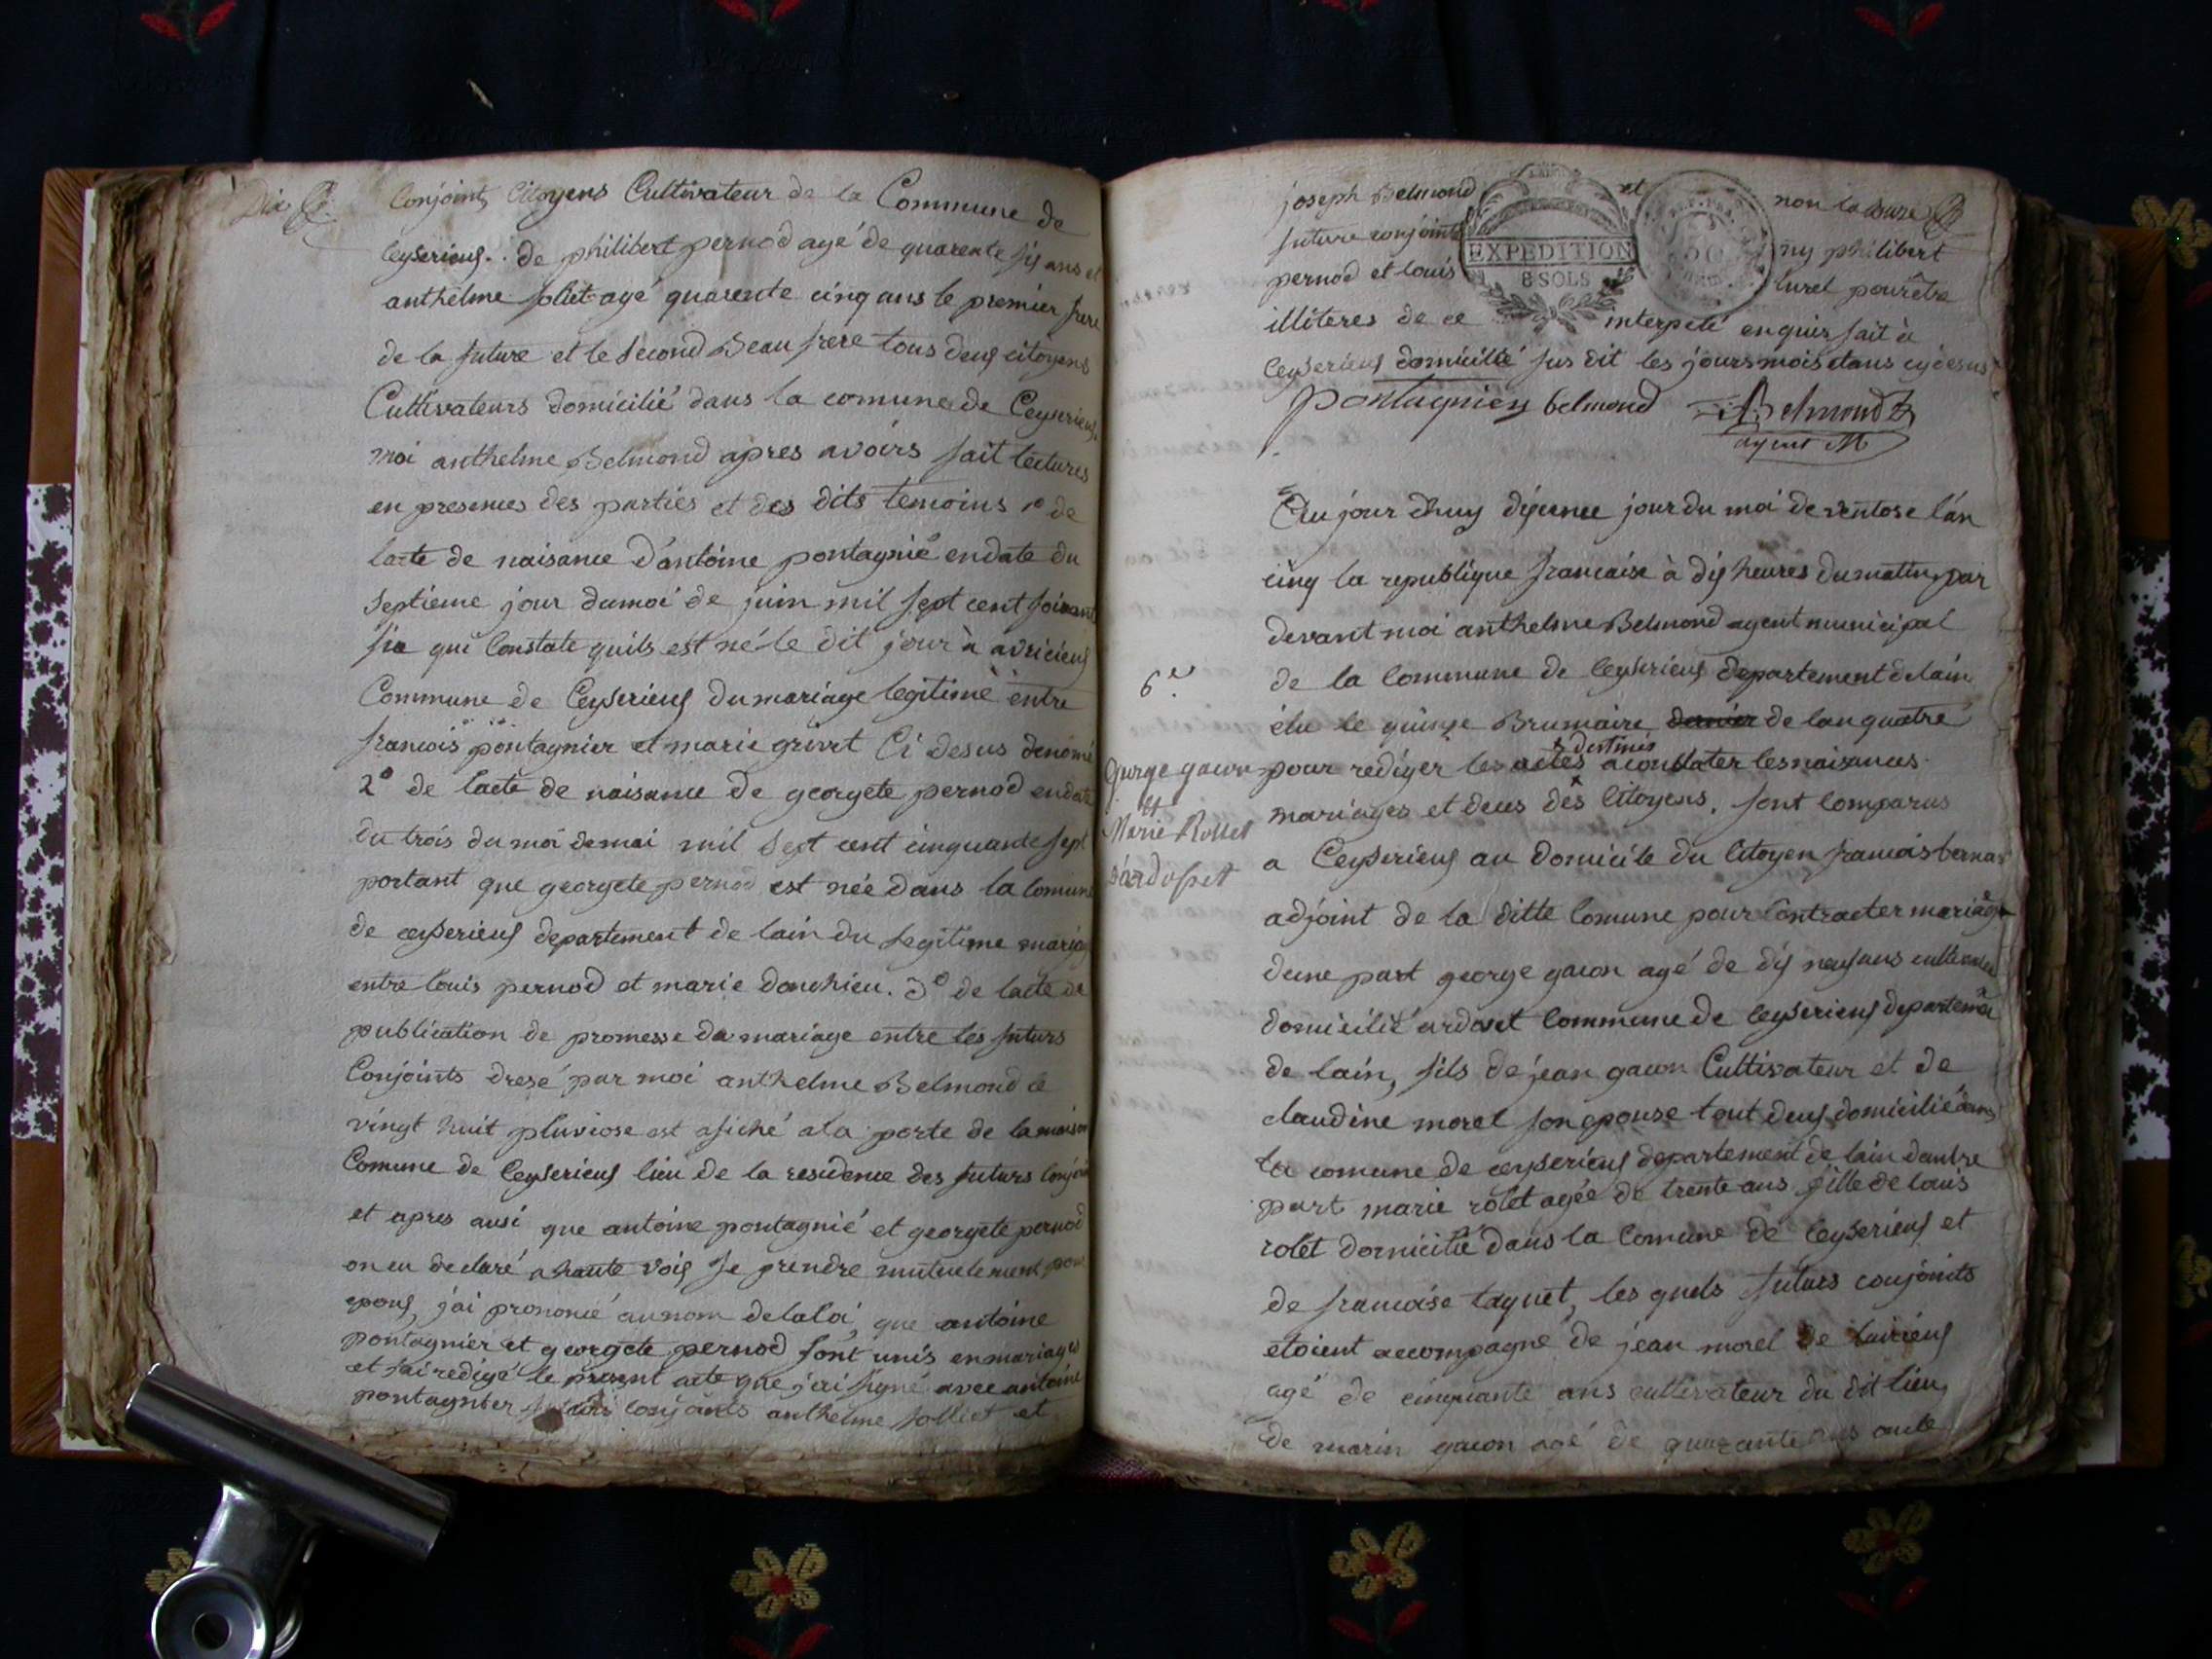 Dix
Conjoint Citoyens Cultivateur de la Commune de
Ceyserieux. de philibert pernod agé de quarente six ans et
anthelme soliet agé quarente cinq ans le premier frere
de la future et le second Beau frere tous deux citoyens
Cultivateurs domicilié dans la comune de Ceyserieux.
moi anthelme Belmond apres avoirs fait lectures
en presences des parties et des dits temoins 1º de
lacte de naisance d'antoine pontagnié en date du
septieme jour du moi de juin mil sept cent soixant
six qui Constate quils est né le dit jour à avricieux
Commune de Ceyserieux du mariage legitime entre
francois pontagnier et marie grivet Ci desus denomé
2º de lacte de naisance de georgete pernod en date
du trois du moi de mai mil sept cent cinquante sept
portant que georgete pernod est née dans la Comune
de ceyserieux departement de lain du legitime mariag
entre louis pernod et marie donchieu. 3º de lacte de
publication de promesse de mariage entre les futurs
Conjoints dresé par moi anthelme Belmond le
vingt huit pluviose est afiché a la porte de la maison
Comune de Ceyserieux lieu de la residence des futurs Conjoi
et apres ausi que antoine pontagnié et georgete pernod
on eu declaré a haute voix se prendre mutuelement pour
epoux, j'ai prononcé au nom de la loi, que antoine
pontagnier et georgete pernod sont unis en mariages
et j'ai redigé le present acte que j'ai signé avec antoine
pontagnier conjoints anthelme solliet et
joseph Belmond et non la
future conjointe ny philibert
pernod et louis luret pour être
EXPEDITION
8 SOLS
illiteres de ce interpelé enquis fait à
Ceyserieux domicilié sus dit les jours mois et ans cy desus
pontagnier belmond A Belmond
agent M
Au jour d'huy dixieme jour du moi de ventose l'an
cinq la republique francaise à dix heures du matin par
devant moi anthelme Belmond agent municipal
de la Commune de Ceyserieux departement de lain
6e.
élu le quinze Brumaire dernier de lan quatre
destinés
pour rediger les actes a constater les naisances
George gacon
et
Marie Rollet
d'ardosset
mariages et deces des Citoyens. sont Comparus
a Ceyserieux au domicile du Citoyen francois bernar
adjoint de la ditte Comune pour Contracter mariage
dune part george gacon agé de dix neuf ans cultivateur
domicilié ardoset Commune de Ceyserieux departeme
de lain, fils de jean gacon Cultivateur et de
claudine morel son epouse tout deux domicilié dans
la comune de ceyserieux departement de lain dautre
part marie rolet agée de trente ans fille de louis
rolet domicilié dans la Comune de Ceyserieux et
de francoise taynet, les quels futurs conjoints
etoient accompagné de jean morel de
agé de cinquante ans cultivateur du dit lieu
de marin gacon agé de quarante ans oncle